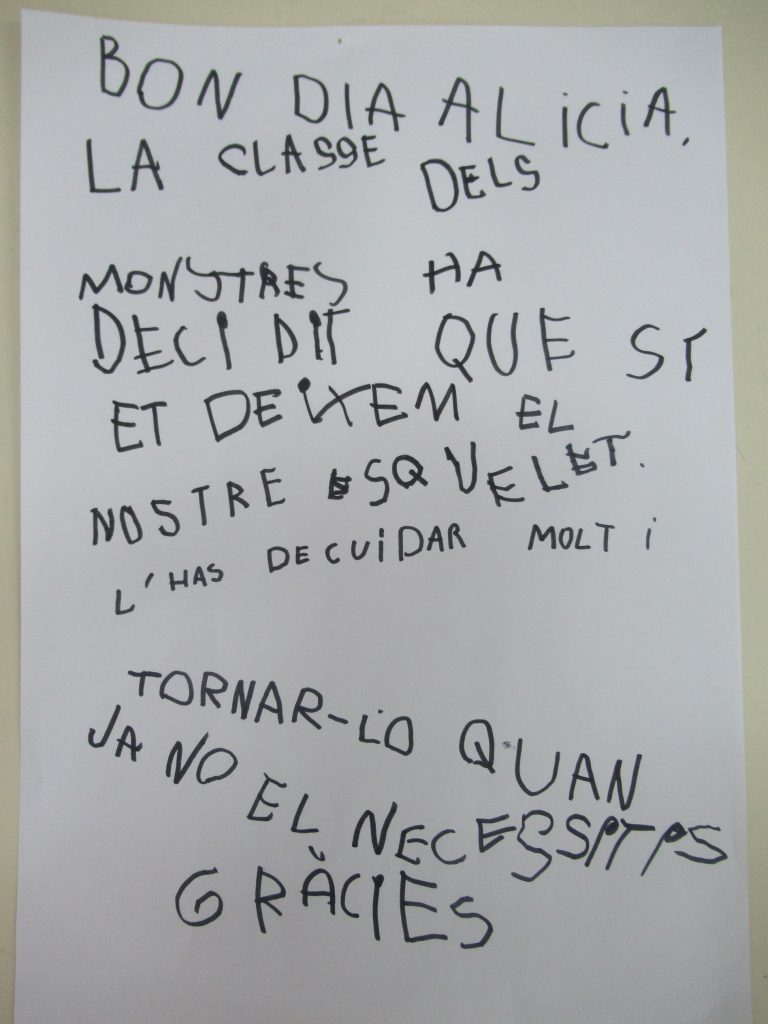 BON DIA ALiCiA.
LA CLASSE DELS
MONSTRES HA
DECIDIT QUE SI
ET DEIXEM EL
NOSTRE ESQUELET.
L'HAS DE CUiDAR MOLT i
TORNAR-LO QUAN
JA NO EL NECESSITIS
GRÀCIES